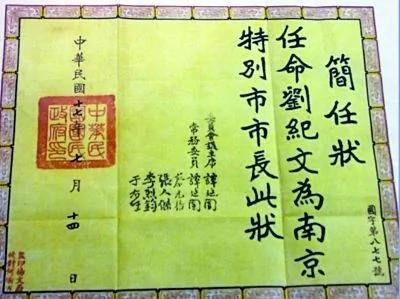 簡任狀
任命劉紀文為南京
特別市市長此狀
委員會議主席 譚延闓
常務委員 譚延闓
蔣元培
張人傑
李烈鈞
于右任
中華民國十七年七月十四日
中華民國國民政府印
國字第八七七號